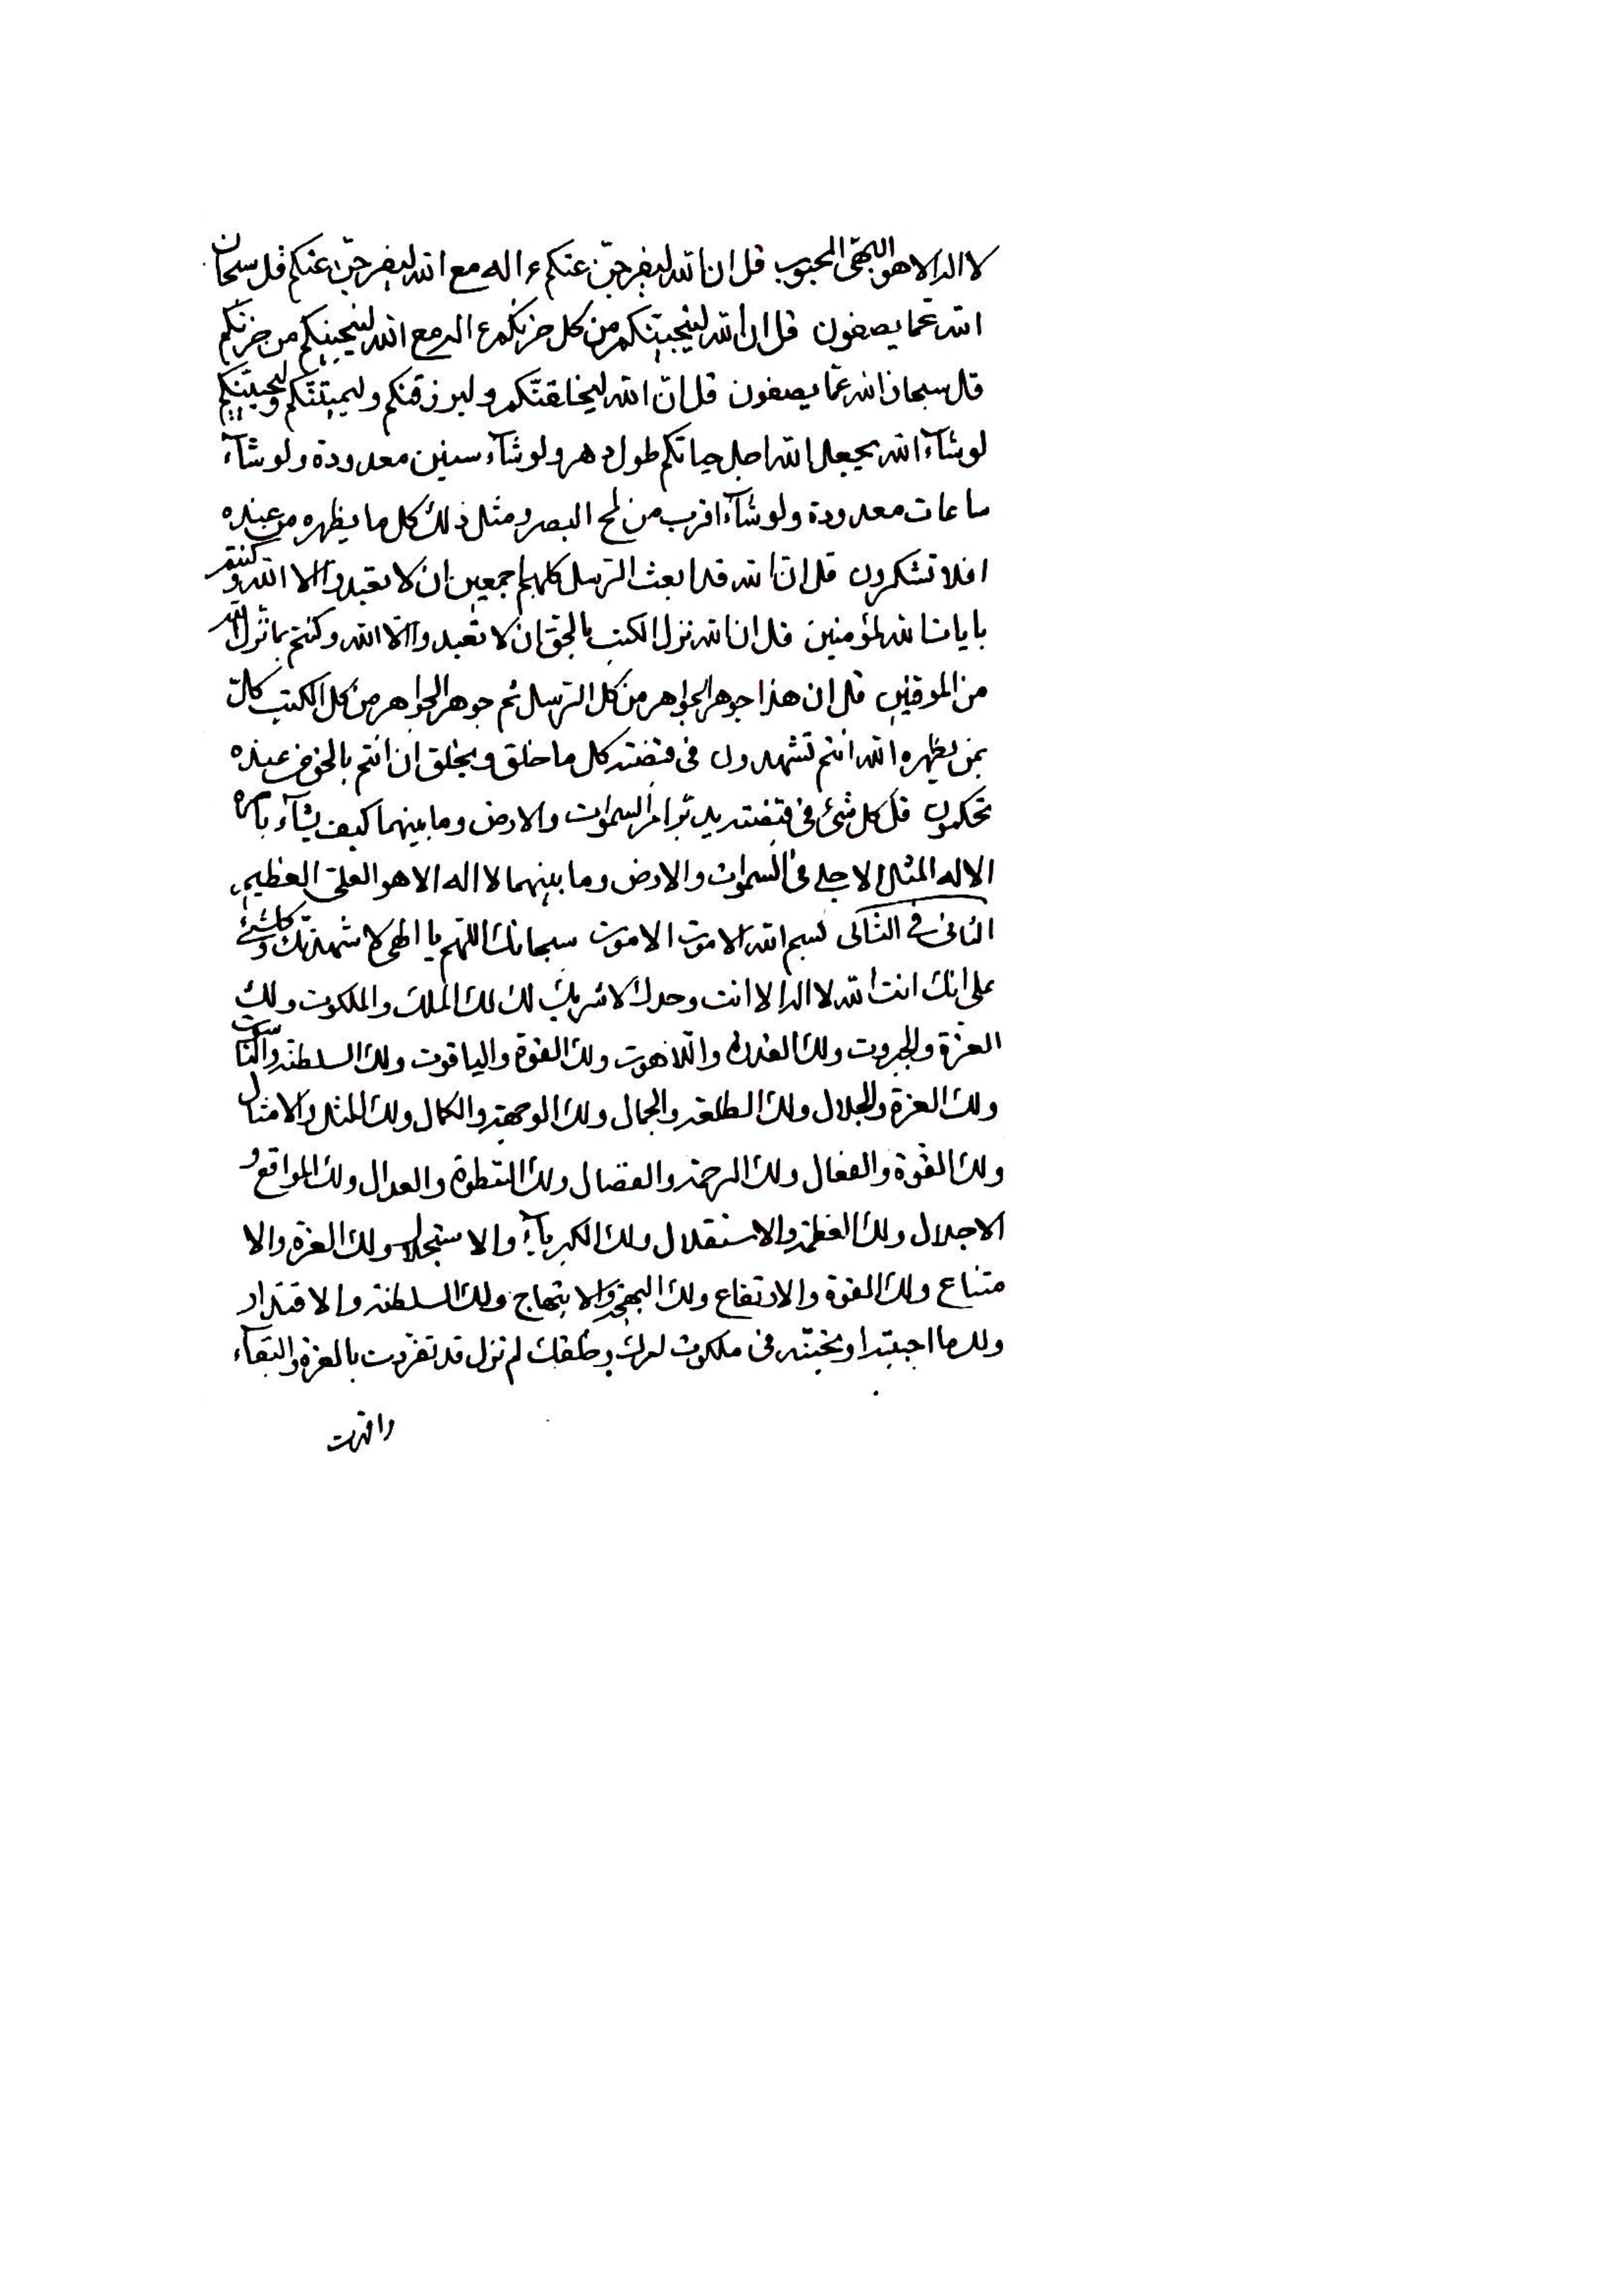 لا اله الا هو البهی المحبوب قل ان الله لیفرجن عنکم ء اله مع الله لیفرجن عنکم قل سبحان
الله عما یصفون قل ان الله لینجینکم من کل حزنکم ء اله مع الله لینجینکم من حزنکم
قل سبحان الله عما یصفون قل ان الله لیخلقنکم ولیرزقنکم ولیمیتنکم ولیحیینکم
لو شآء الله یجعل الله اجل حیاتکم طول دهر ولو شآء سنین معدودة ولو شآء
ساعات معدودة ولو شآء اقرب من لمح البصر ومثل ذلك کل ما یظهره من عنده
افلا تشکرون قل ان الله قد ابعث الرسل کلهم اجمعین ان لا تعبدوا الا الله وکنتم
بایات الله لمؤمنین قل ان الله نزل الکتب بالحق ان لا تعبدوا الا الله وکنتم بما نزل الله
من الموقنین قل ان هذا جوهر الجواهر من کل الرسل ثم جوهر الجواهر من کل الکتب کل
بمن یظهره الله انتم تشهدون فی قبضته کل ما خلق ویخلق ان انتم بالحق من عنده
تحکمون قل کل شئ فی قبضته یدبر امر السموات والارض وما بینهما کیف یشآء بامره
الا له المثل الاجل فی السموات والارض وما بینهما لا اله الا هو العلی العظیم
الثانی فی الثانی بسم الله الاموت الاموت سبحانك اللهم یا الهی لاشهدنك وکلشئ
علی انك انت الله لا اله الا انت وحدك لا شریك لك لك الملك والملکوت ولك
العزة والجبروت ولك القدرة واللاهوت ولك القوة والیاقوت ولك السلطنة والناسوت
ولك العزة والجلال ولك الطلعة والجمال ولك الوجهة والکمال ولك المثل والامثال
ولك القوة والفعال ولك الرحمة والفضال ولك السطوة والعدال ولك المواقع و
الاجلال ولك العظمة والاستقلال ولك الکبریآء والاستجلال ولك العزة والا
متناع ولك القوة والارتفاع ولك البهجة والابتهاج ولك السلطنة والاقتدار
ولك ما احببته او تحبنه فی ملکوت امرك وخلقك لم تزل قد تفردت بالعزة والبقآء